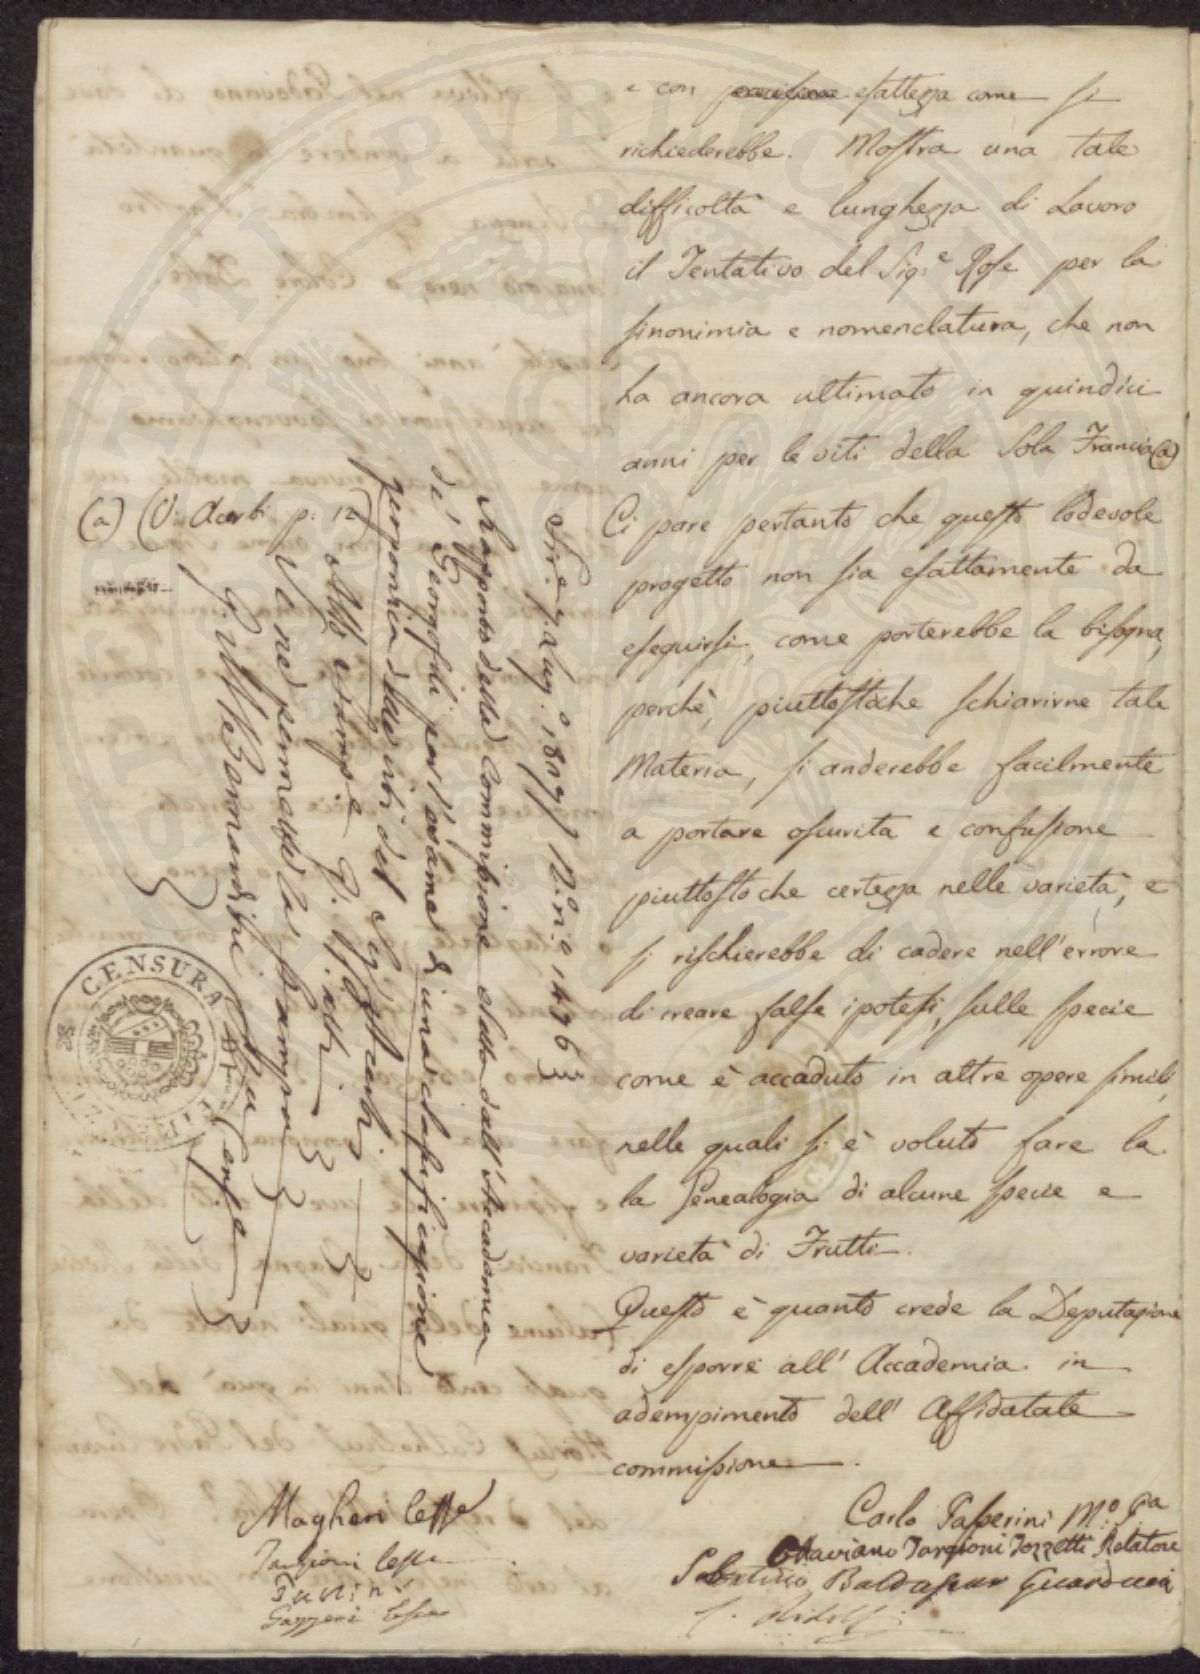 e con precisione esattezza come si
richiederebbe. Mostra una tale
difficoltà e lunghezza di Lavoro
il Tentativo del Sig.e Rose per la
sinonimia e nomenclatura, che non
ha ancora ultimato in quindici
anni per le viti della sola Francia (a)
Ci pare pertanto che questo lodevole
progetto non sia esattamente da
eseguirsi, come porterebbe la bisogna,
perchè, piuttostoche schiarirne tale
Materia, si anderebbe facilmente
a portare oscurità e confusione
piuttosto che certezza nelle varietà, e
si rischierebbe di cadere nell'errore
di creare false ipotesi, sulle specie
come è accaduto in altre opere simili,
nelle quali si è voluto fare la
la Genealogia di alcune specie e
varietà di Frutti.
Questo è quanto crede la Deputazione
di esporre all' Accademia in
adempimento dell' Affidatale
commissione.
Carlo Passerini M.o P.a
Ottaviano Targioni Tozzetti Relatore
Baldassar Guarducci
C. Ridolfi
Magheri
Targioni
Gazzeri
(a) (V. Acerbi p. 12)
Rapporto della Commissione eletta dall'Accademia
dei Georgofili per l'esame di una classificazione
geoponica delle viti del Sig. Acerbi
Alle stampe
Se ne permette la stampa
CENSURA